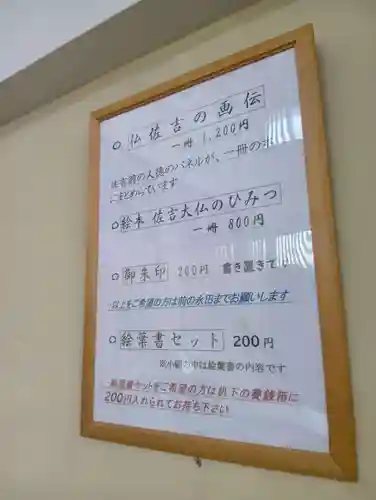 ○ 仏佐吉の画伝
一冊 1,200円
佐吉翁の人徳のパネルが、一冊の本
にまとめています
○ 絵本 佐吉大仏のひみつ
一冊 800円
○ 御朱印 200円 書き置きで
以上をご希望の方は 永田までお願いします
○ 絵葉書セット 200円
※小額 中は絵葉書の内容です
絵葉書セットをご希望の方は以下の賽銭箱に
200円入れられてお持ち下さい